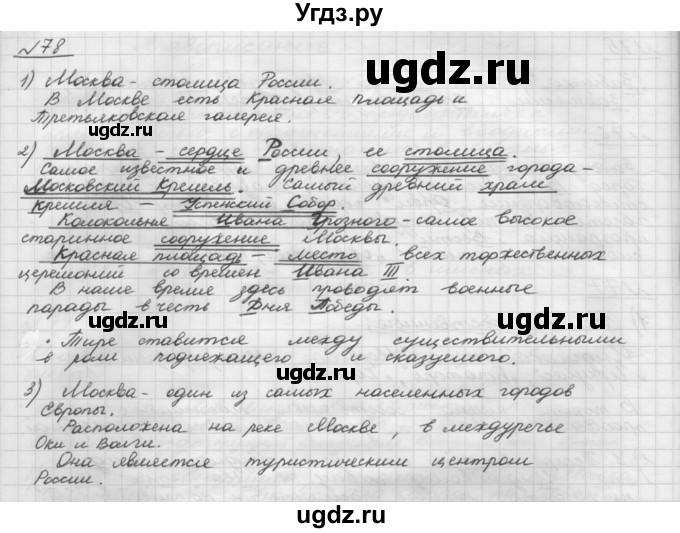 Угдз.ру
№78
1) Москва - столица России.
В Москве есть Красная площадь и
Третьяковская галерея.
2) Москва - сердце России, её столица.
Самое известное и древнее сооружение города -
Московский Кремль. Самый древний храм
Кремля - Успенский Собор.
Колокольня Ивана Грозного - самое высокое
старинное сооружение Москвы.
Красная площадь - место всех торжественных
церемоний со времён Ивана III.
В наше время здесь проводят военные
парады в честь Дня Победы.
• Тире ставится между существительными
в роли подлежащего и сказуемого.
3) Москва - один из самых населенных городов
Европы.
Расположена на реке Москве, в междуречье
Оки и Волги.
Она является туристическим центром
России.
ugdz.ru
ugdz.ru
ugdz.ru
ugdz.ru
ugdz.ru
ugdz.ru
ugdz.ru
ugdz.ru
ugdz.ru